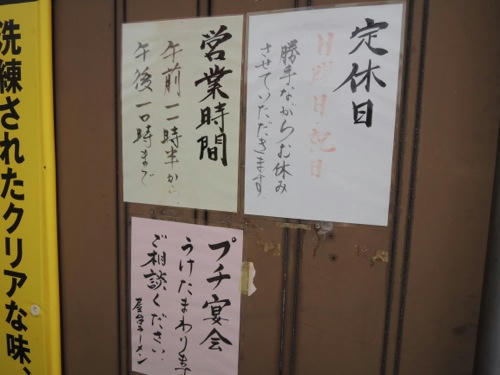 定休日
日曜日・祝日
勝手ながらお休み
させていただきます
営業時間
午前一一時半から
午後一〇時まで
プチ宴会
うけたまわります
ご相談ください
屋台ラーメン
洗練されたクリアな味、